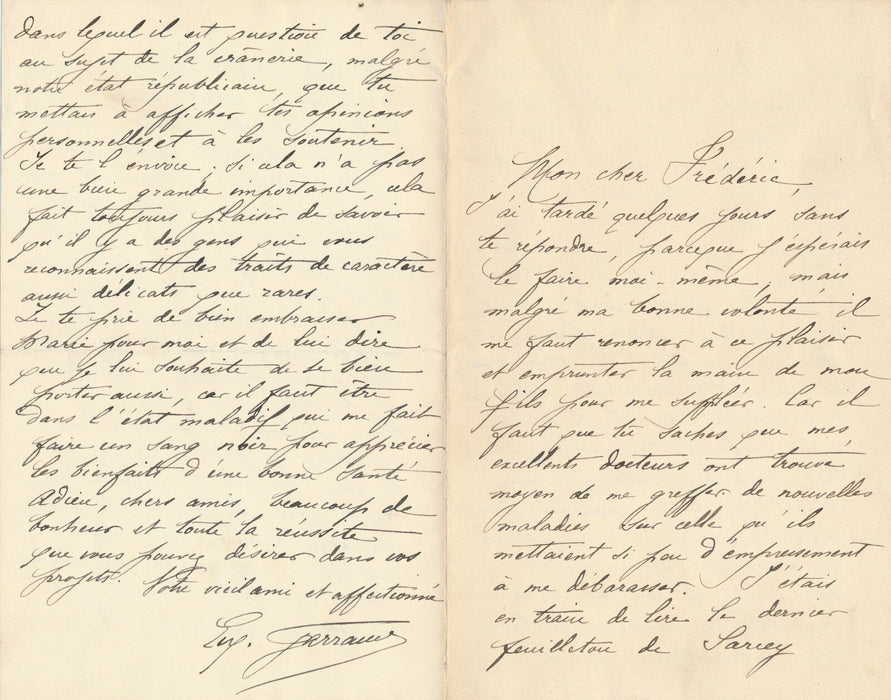 Mon cher Frédéric,
J'ai tardé quelques jours sans
te répondre, parceque j'espérais
le faire moi-même; mais
malgré ma bonne volonté il
me faut renoncer à ce plaisir
et emprunter la main de mon
fils pour me suppléer. Car il
faut que tu saches que mes
excellents docteurs ont trouvé
moyen de me greffer de nouvelles
maladies sur celle qu'ils
mettaient si peu d'empressement
à me débarasser. J'étais
en train de lire le dernier
feuilleton de Sarcey
dans lequel il est question de toi
au sujet de la crânerie, malgré
notre état républicain, que tu
mettais à afficher tes opinions
personnelles et à les soutenir.
Je te l'envoie; si cela n'a pas
une bien grande importance, cela
fait toujours plaisir de savoir
qu'il y a des gens qui vous
reconnaissent des traits de caractère
aussi délicats que rares.
Je te prie de bien embrasser
Marie pour moi et de lui dire
que je lui souhaite de se bien
porter aussi, car il faut être
dans l'état maladif qui me fait
faire un sang noir pour apprécier
les bienfaits d'une bonne santé
Adieu, chers amis, beaucoup de
bonheur et toute la réussite
que vous pouvez désirer dans vos
projets. Votre vieil ami et affectionné
Eug.